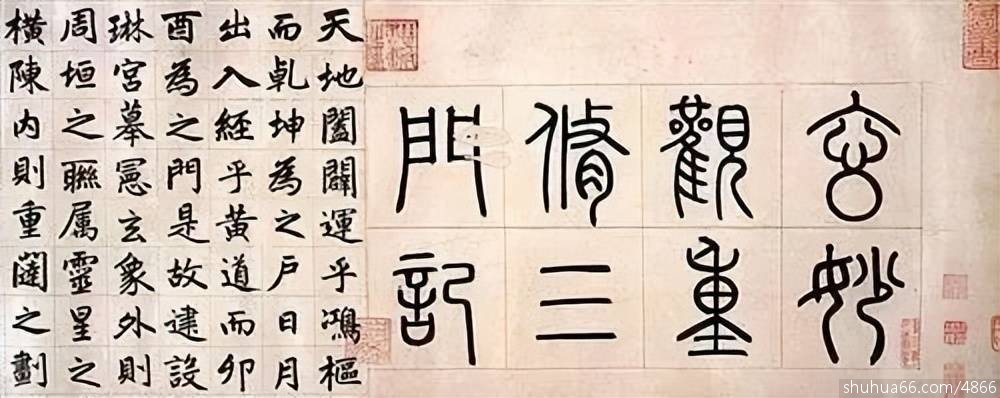 玄妙
觀重
脩三
門記
天地闔闢運乎鴻樞
而乹坤為之戶日月
出入經乎黃道而卯
酉為之門是故建設
琳宮摹憲玄象外則
周垣之聯属靈星之
橫陳內則重闥之劃
shuhua66.com/4866